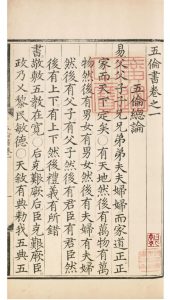 五倫書卷之一
五倫總論
易父父子子兄兄弟弟夫夫婦婦而家道正正
家而天下定矣○有天地然後有萬物有萬
物然後有男女有男女然後有夫婦有夫婦
然後有父子有父子然後有君臣有君臣然
後有上下有上下然後禮義有所錯
書敬敷五教在寬○后克艱厥后臣克艱厥臣
政乃乂黎民敏德○天敘有典勑我五典五